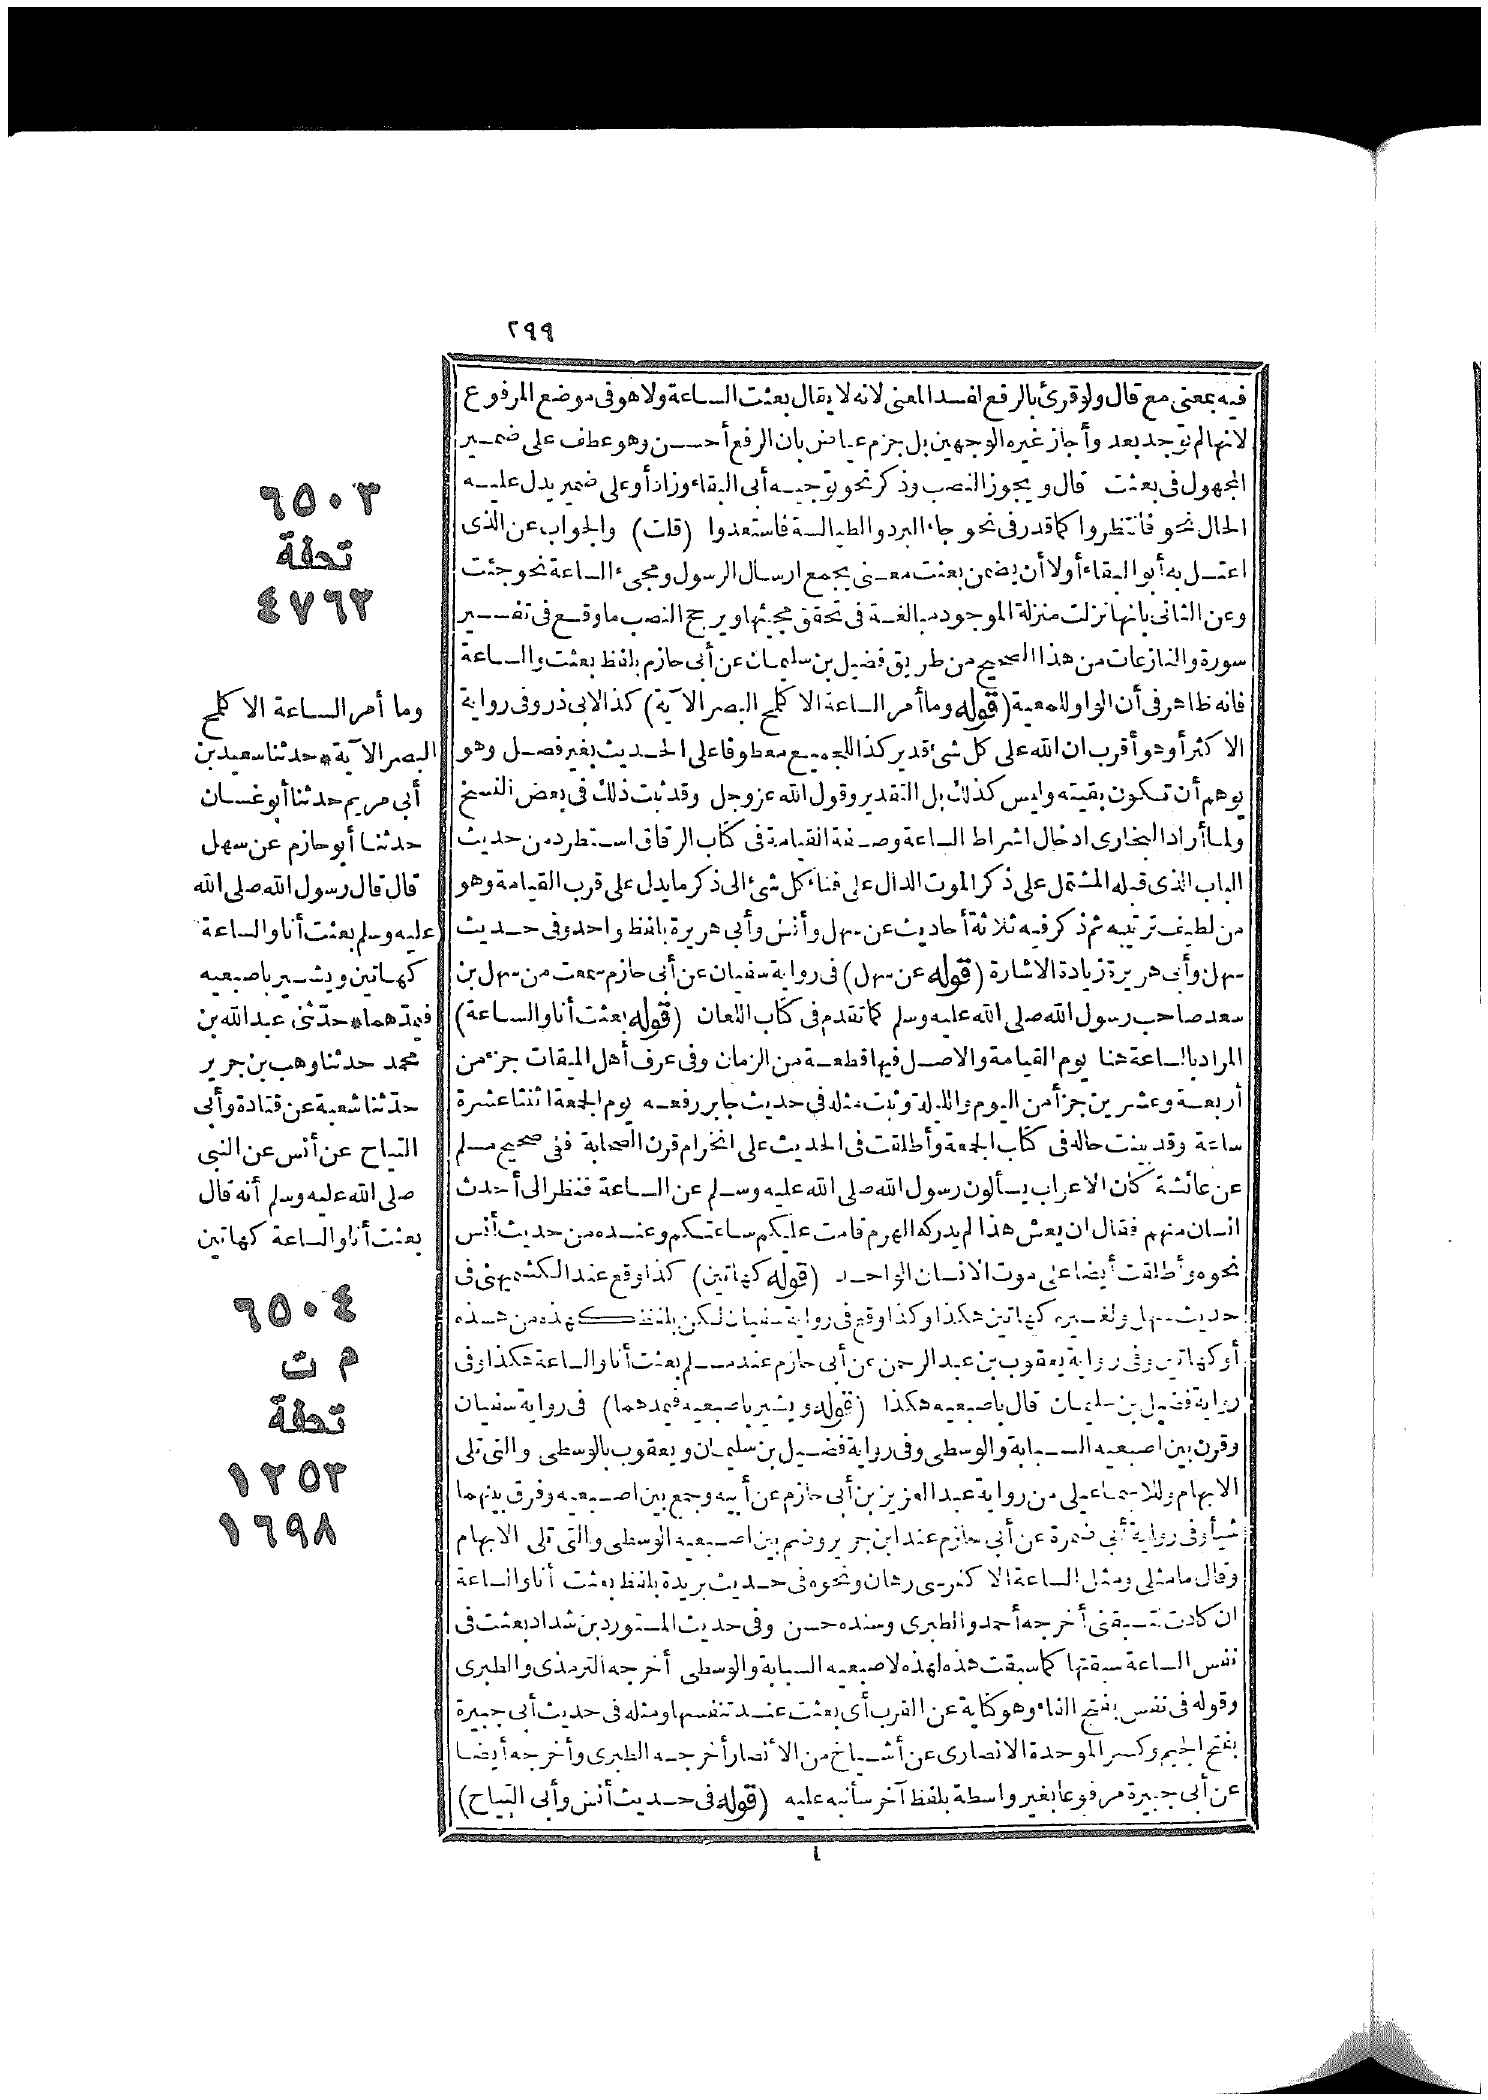 ٢٩٩
فيه بمعنى مع قال ولو قرئ بالرفع لفسد المعنى لانه لا يقال بعثت الساعة ولا هو فى موضع المرفوع
لانها لم توجد بعد وأجاز غيره الوجهين بل جزم عياض بان الرفع أحسن وهو عطف على ضمير
المجهول فى بعثت قال ويجوز النصب وذكر نحو توجيه أبى البقاء وزاد أو على ضمير يدل عليه
الحال نحو فانتظروا كما قدر فى نحو جاء البرد والطيالسة فاستعدوا (قلت) والجواب عن الذى
اعتل به أبو البقاء أولا أن يضمن بعثت معنى يجمع ارسال الرسول ومجىء الساعة نحو جئت
وعن الثانى بانها نزلت منزلة الموجود مبالغة فى تحقق مجيئها ويرجح النصب ما وقع فى تفسير
سورة والنازعات من هذا الصحيح من طريق فضيل بن سليمان عن أبى حازم بلفظ بعثت والساعة
فانه ظاهر فى أن الواو للمعية (قوله وما أمر الساعة الا كلمح البصر الآية) كذا لابى ذر وفى رواية
الاكثر أو هو أقرب ان الله على كل شئ قدير كذا للجميع معطوفا على الحديث بغير فصل وهو
يوهم أن تكون بقيته وليس كذلك بل التقدير وقول الله عز وجل وقد ثبت ذلك فى بعض النسخ
ولما أراد البخارى ادخال اشراط الساعة وصفة القيامة فى كتاب الرقاق استطرد من حديث
الباب الذى قبله المشتمل على ذكر الموت الدال على فناء كل شئ الى ذكر ما يدل على قرب القيامة وهو
من لطيف ترتيبه ثم ذكر فيه ثلاثة أحاديث عن سهل وأنس وأبى هريرة بلفظ واحد وفى حديث
سهل وأبى هريرة زيادة الاشارة (قوله عن سهل) فى رواية سفيان عن أبى حازم سمعت من سهل بن
سعد صاحب رسول الله صلى الله عليه وسلم كما تقدم فى كتاب اللعان (قوله بعثت أنا والساعة)
المراد بالساعة هنا يوم القيامة والاصل فيها قطعة من الزمان وفى عرف أهل الميقات جزء من
أربعة وعشرين جزأ من اليوم والليلة وثبت مثله فى حديث جابر رفعه يوم الجمعة اثنتا عشرة
ساعة وقد بينت حاله فى كتاب الجمعة وأطلقت فى الحديث على انخرام قرن الصحابة ففى صحيح مسلم
عن عائشة كان الاعراب يسألون رسول الله صلى الله عليه وسلم عن الساعة فنظر الى أحدث
انسان منهم فقال ان يعش هذا لم يدركه الهرم قامت عليكم ساعتكم وعنده من حديث أنس
نحوه وأطلقت أيضا على موت الانسان الواحد (قوله كهاتين) كذا وقع عند الكشميهنى فى
حديث سهل ولغيره كهاتين هكذا وكذا وقع فى رواية سفيان لكن بلفظ كهذه من هذه
أو كهاتين وفى رواية يعقوب بن عبد الرحمن عن أبى حازم عند مسلم بعثت أنا والساعة هكذا وفى
رواية فضيل بن سليمان قال باصبعيه هكذا (قوله ويشير باصبعيه فيمدهما) فى رواية سفيان
وقرن بين اصبعيه السبابة والوسطى وفى رواية فضيل بن سليمان ويعقوب بالوسطى والتى تلى
الابهام وللاسماعيلى من رواية عبد العزيز بن أبى حازم عن أبيه وجمع بين اصبعيه وفرق بينهما
شيأ وفى رواية أبى ضمرة عن أبى حازم عند ابن جرير وضم بين اصبعيه الوسطى والتى تلى الابهام
وقال ما مثلى ومثل الساعة الا كفرسى رهان ونحوه فى حديث بريدة بلفظ بعثت أنا والساعة
ان كادت لتسبقنى أخرجه أحمد والطبرى وسنده حسن وفى حديث المستورد بن شداد بعثت فى
نفس الساعة سبقتها كما سبقت هذه لهذه لاصبعيه السبابة والوسطى أخرجه الترمذى والطبرى
وقوله فى نفس بفتح الفاء وهو كناية عن القرب أى بعثت عند تنفسها ومثله فى حديث أبى جبيرة
بفتح الجيم وكسر الموحدة الانصارى عن أشياخ من الأنصار أخرجه الطبرى وأخرجه أيضا
عن أبى جبيرة مرفوعا بغير واسطة بلفظ آخر سأنبه عليه (قوله فى حديث أنس وأبى التياح)
٦٥٠٣
تحفة
٤٧٦٢
وما أمر الساعة الا كلمح
البصر الآية * حدثنا سعيد بن
أبى مريم حدثنا أبو غسان
حدثنا أبو حازم عن سهل
قال قال رسول الله صلى الله
عليه وسلم بعثت أنا والساعة
كهاتين ويشير باصبعيه
فيمدهما * حدثنى عبد الله بن
محمد حدثنا وهب بن جرير
حدثنا شعبة عن قتادة وأبى
التياح عن أنس عن النبى
صلى الله عليه وسلم أنه قال
بعثت أنا والساعة كهاتين
٦٥٠٤
م ت
تحفة
١٢٥٣
١٦٩٨